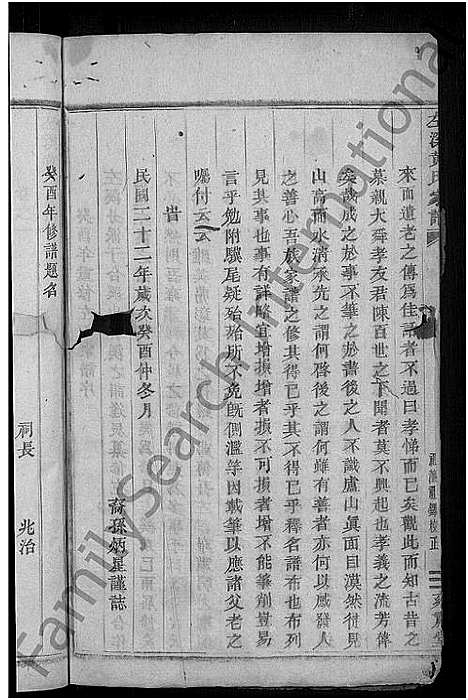 來而遺老之傳爲佳話者不過曰孝悌而已矣觀此而知古昔之
慕親大舜孝友君陳百世之下聞者莫不興起也孝義之流芳偉
矣哉成之於事不筆之於書後之人不識盧山眞面目漠然徒見
山高而水淸承先之謂何啓後之謂何雖有善者亦何以感發人
之善心吾族家譜之修其得已乎其不得已乎釋名譜布也布列
見其事也事有詳略宜增損增者損不可損者增不能筆削豈易
言乎勉附驥尾疑殆殆所不免旣側濫竽因載筆以應諸父老之
囑付云云
告
民國二十二年歲次癸酉仲冬月
裔孫炳星謹誌
癸酉年修譜題名
祠長 兆治
FamilySearch International